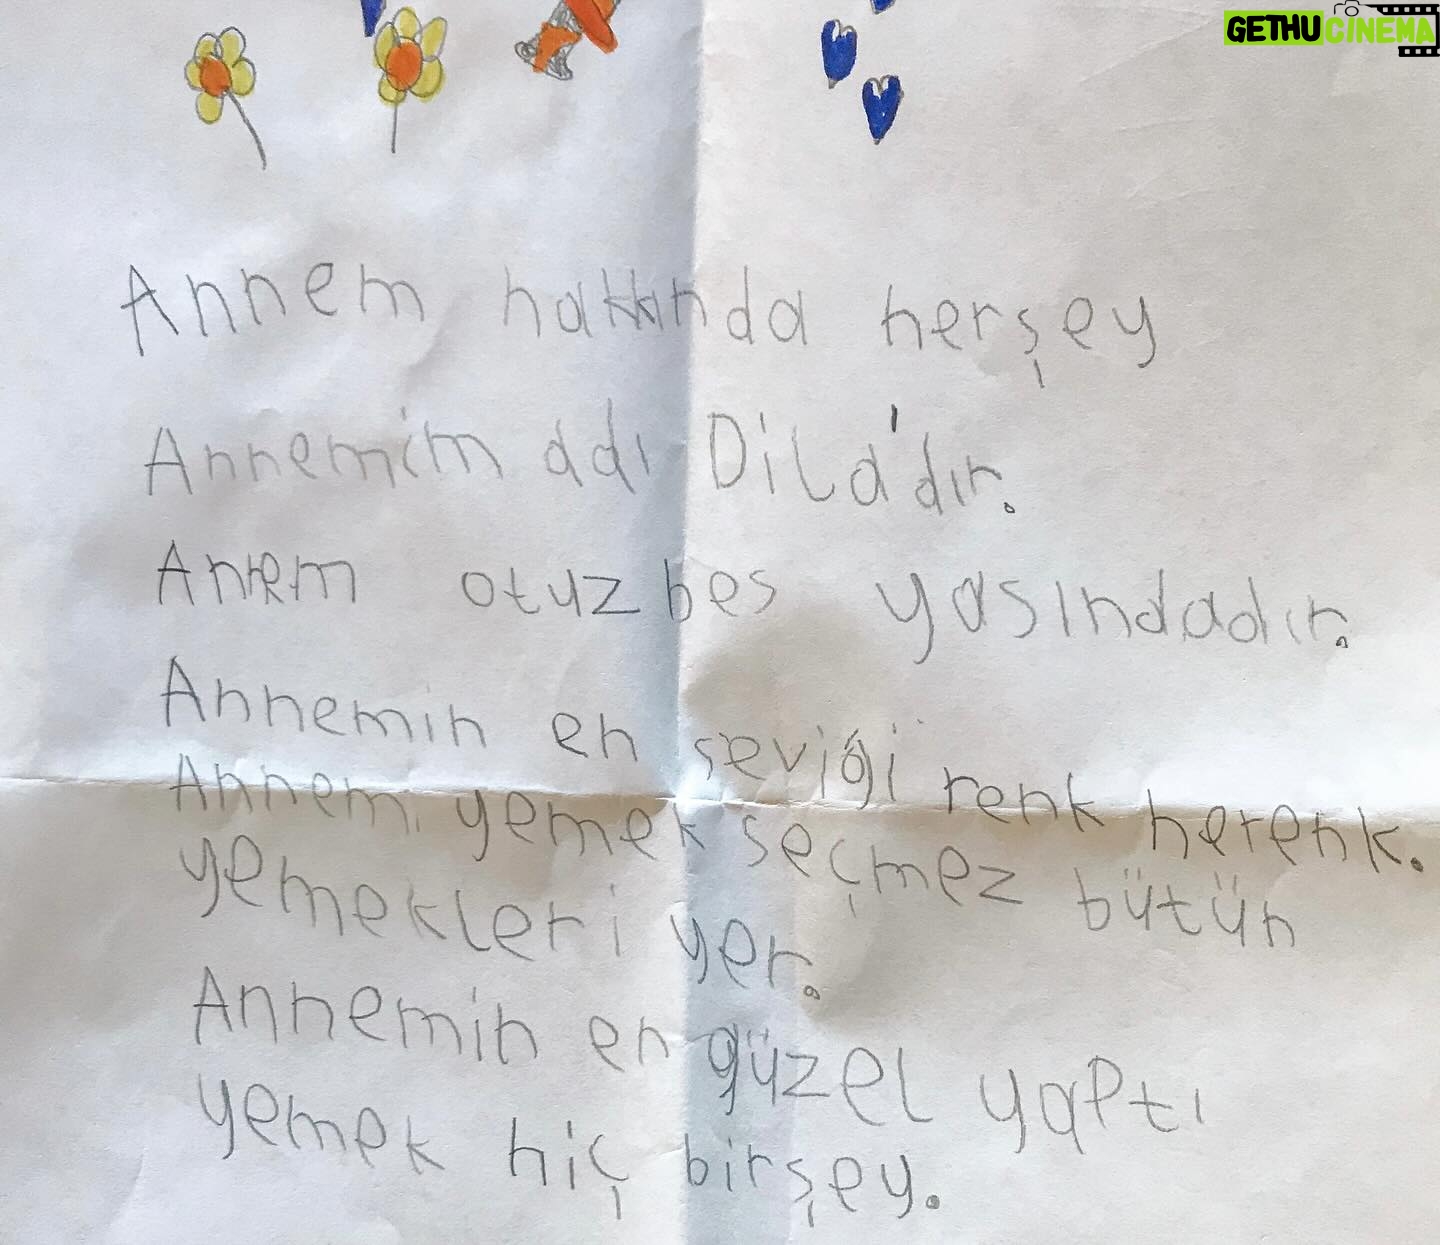 GETHUCINEMA
Annem hakkında herşey
Annemim adı Dila'dır.
Annem otuz bes yasındadır.
Annemin en seviği renk herenk.
Annem yemek seçmez bütün
yemekleri yer.
Annemin en güzel yaptı
yemek hiç birşey.